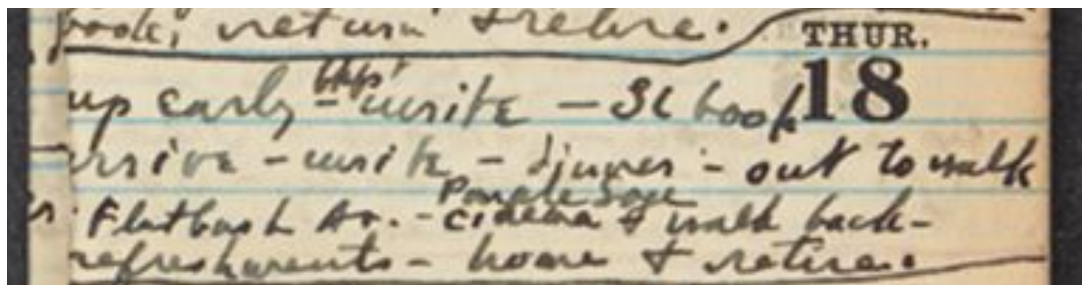 book, return & retire.
THUR.
18
up early - write - SL book
arrive - write - dinner - out to walk
Flatbush Av. - cinema & walk back -
refreshments - home & retire.